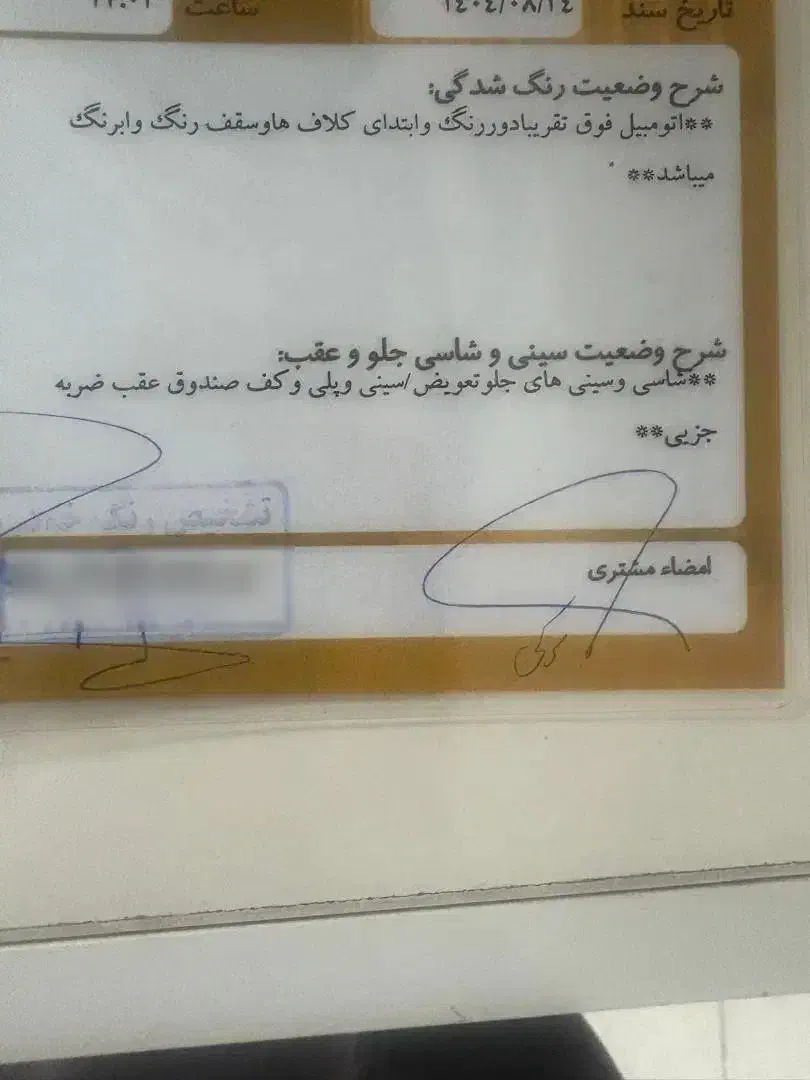 تاریخ سند ۱۴۰۴/۰۸/۱۴ ساعت
شرح وضعیت رنگ شدگی:
**اتومبیل فوق تقریبادوررنگ وابتدای کلاف هاوسقف رنگ وابرنگ
میباشد**
شرح وضعیت سینی و شاسی جلو و عقب:
**شاسی وسینی های جلوتعویض/سینی وپلی وکف صندوق عقب ضربه
جزیی**
تشخیص رنگ
امضاء مشتری